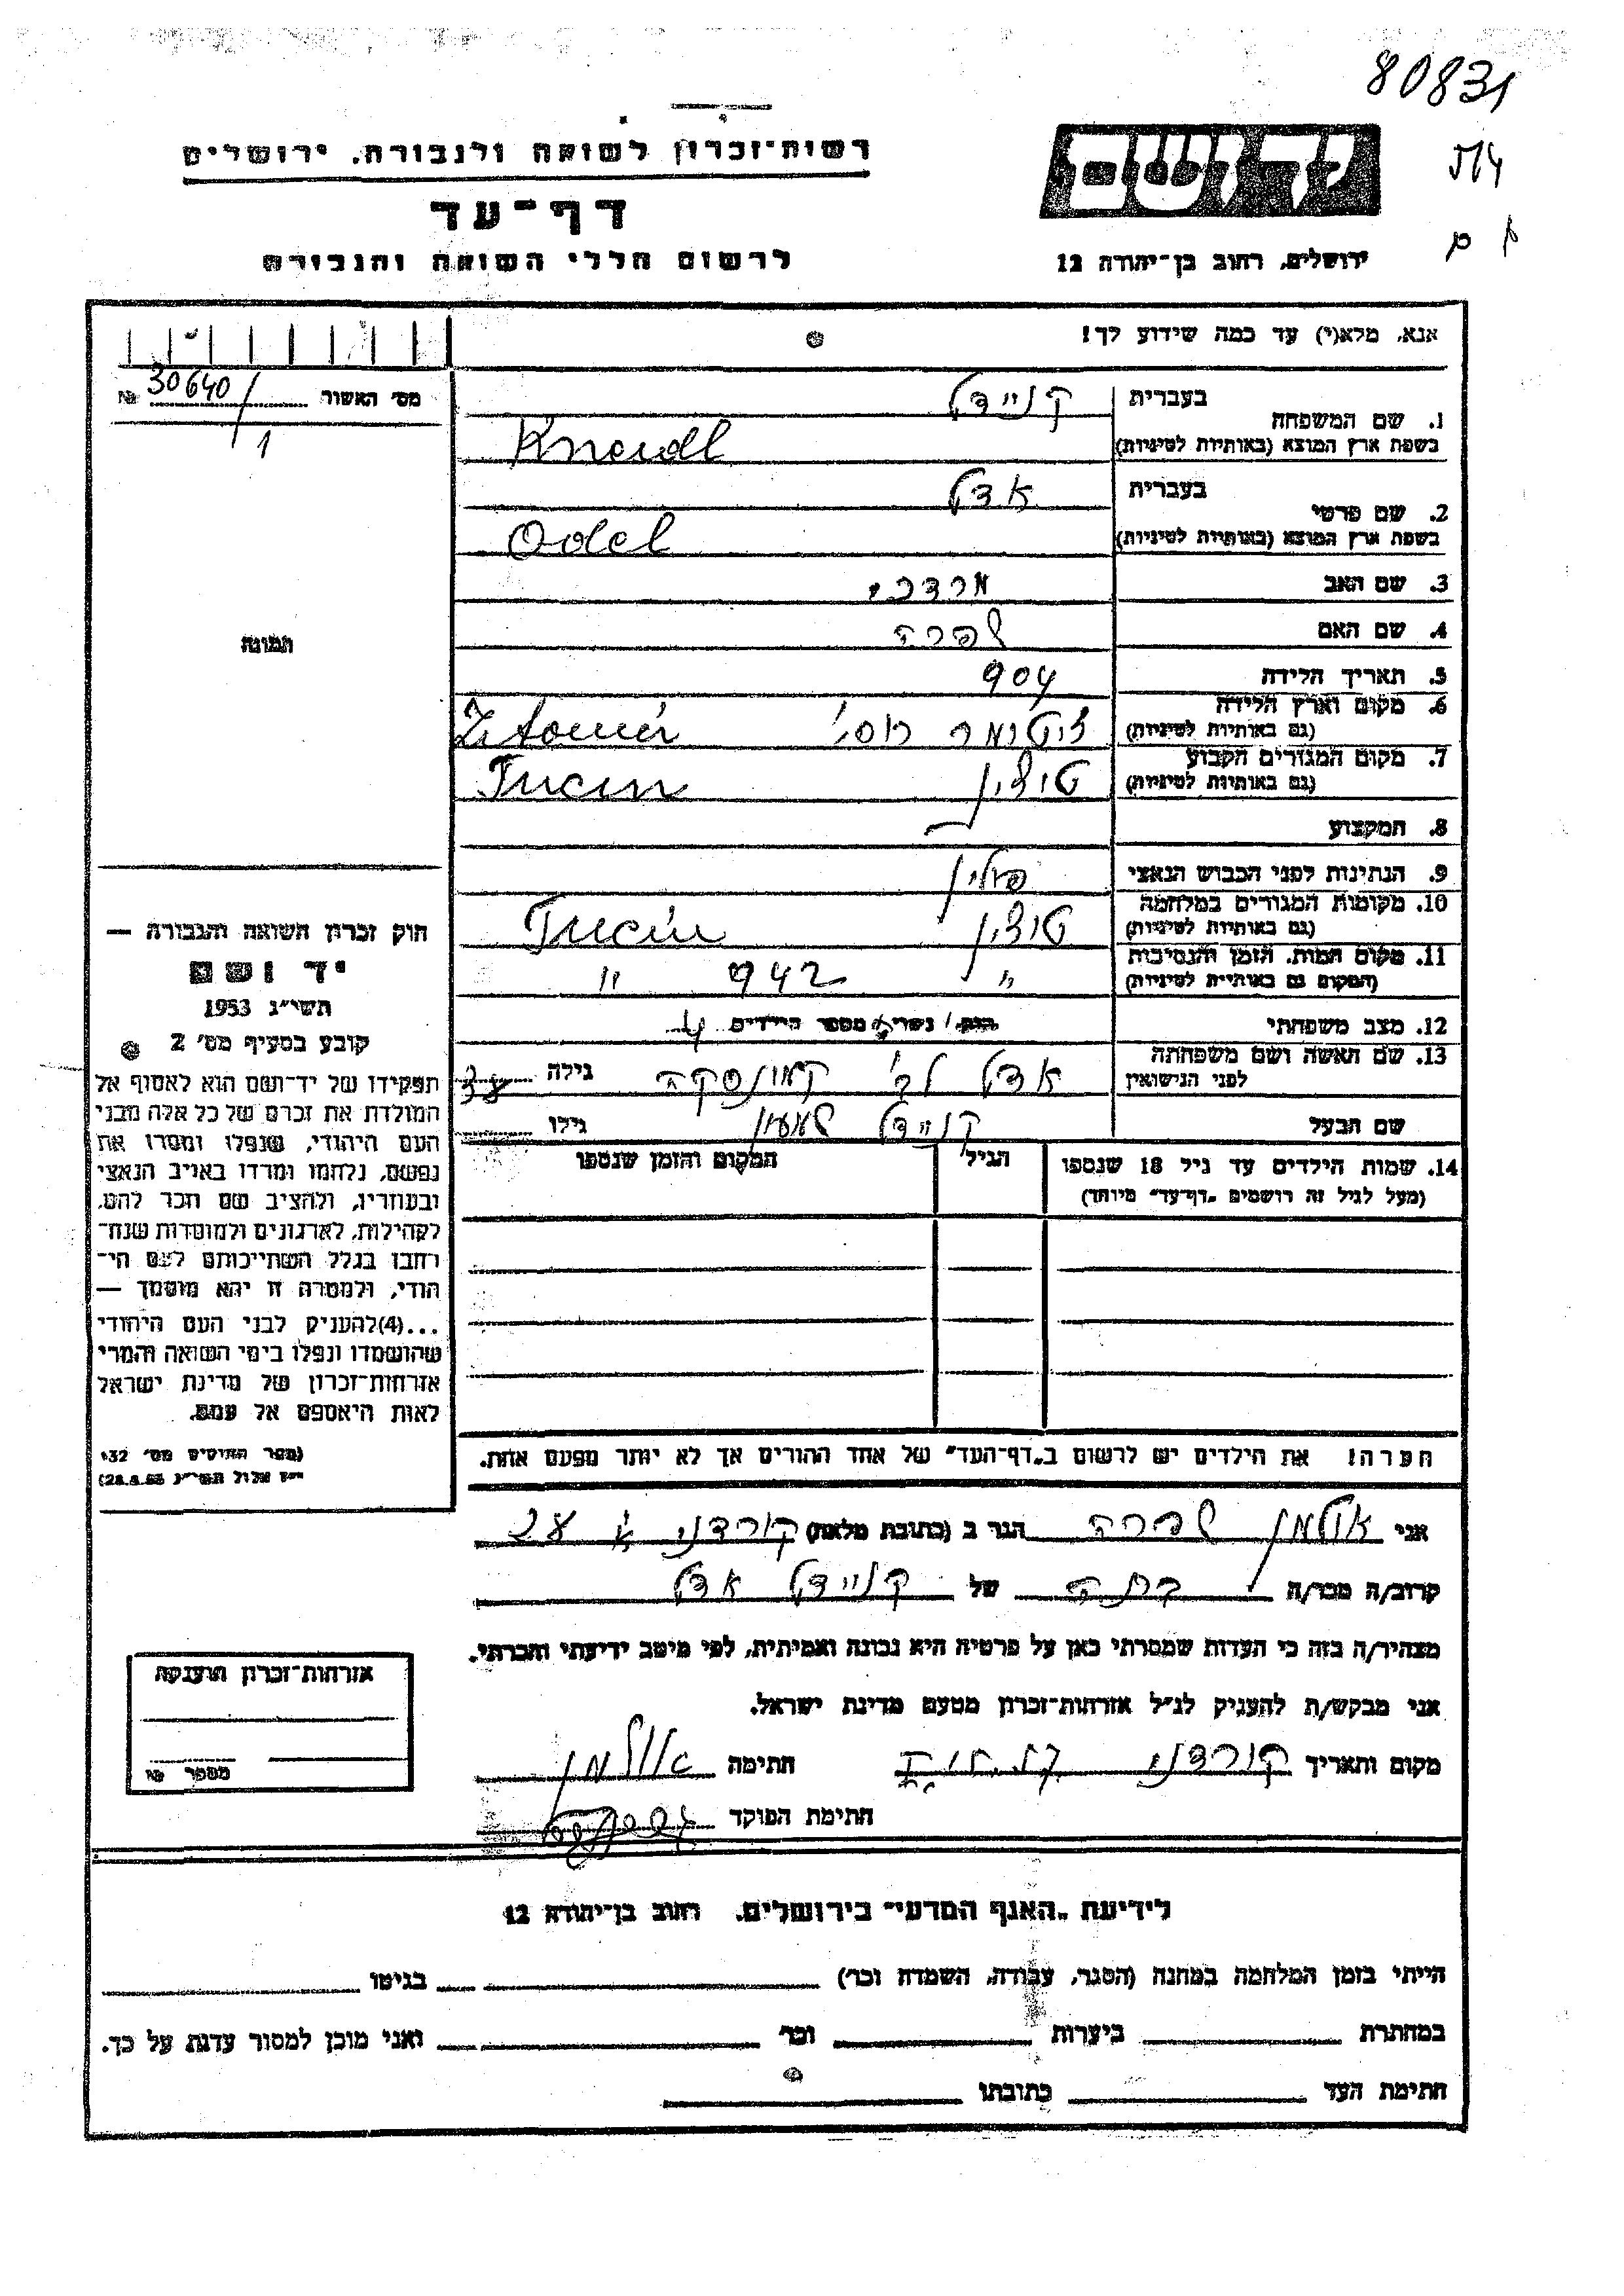 80831
רשות־זכרון לשואה ולגבורה, ירושלים
דף־עד
לרשום חללי השואה והגבורה
יד ושם
ירושלים, רחוב בן־יהודה 12
אנא, מלא(י) עד כמה שידוע לך!
מס׳ האשור 30640/1 №
תמונה
1. שם המשפחה בעברית קניידל
בשפת ארץ המוצא (באותיות לטיניות) Kneidl
2. שם פרטי בעברית אדל
בשפת ארץ המוצא (באותיות לטיניות) Odel
3. שם האב מרדכי
4. שם האם שפרה
5. תאריך הלידה 904
6. מקום וארץ הלידה (גם באותיות לטיניות) ז׳יטומיר רוסי׳ Żitomir
7. מקום המגורים הקבוע (גם באותיות לטיניות) טוצ׳ין Tucin
8. המקצוע —
9. הנתינות לפני הכבוש הנאצי פולין
10. מקומות המגורים במלחמה (גם באותיות לטיניות) טוצ׳ין Tucin
11. מקום המות, הזמן והנסיבות (המקום גם באותיות לטיניות) " 942 "
12. מצב משפחתי נשוי/אה מספר הילדים 4
13. שם האשה ושם משפחתה לפני הנישואין אדל לב׳ גילה 38
שם הבעל קניידל שמעון גילו
14. שמות הילדים עד גיל 18 שנספו (מעל לגיל זה רושמים „דף־עד״ מיוחד) הגיל המקום והזמן שנספו
חוק זכרון השואה והגבורה —
יד ושם
תשי״ג 1953
קובע בסעיף מס׳ 2
תפקידו של יד־ושם הוא לאסוף אל
המולדת את זכרם של כל אלה מבני
העם היהודי, שנפלו ומסרו את
נפשם, נלחמו ומרדו באויב הנאצי
ובעוזריו, ולהציב שם וזכר להם,
לקהילות, לארגונים ולמוסדות שנח־
רבו בגלל השתייכותם לעם הי־
הודי, ולמטרה זו יהא מוסמך —
...(4)להעניק לבני העם היהודי
שהושמדו ונפלו בימי השואה והמרי
אזרחות־זכרון של מדינת ישראל
לאות היאספם אל עמם.
(ספר החוקים מס׳ 132
י״ז אלול תשי״ג 28.8.53)
הערה! את הילדים יש לרשום ב„דף־העד״ של אחד ההורים אך לא יותר מפעם אחת.
אני אולמן שפרה הגר ב (כתובת מלאה) קורדני א׳
קרוב/ה מכר/ה בתה של קניידל אדל
מצהיר/ה בזה כי העדות שמסרתי כאן על פרטיה היא נכונה ואמיתית, לפי מיטב ידיעתי והכרתי.
אני מבקש/ת להעניק לנ״ל אזרחות־זכרון מטעם מדינת ישראל.
מקום ותאריך קורדני חתימה אולמן
חתימת הפוקד
אזרחות־זכרון הוענקה
מספר №
לידיעת „האגף המדעי״ בירושלים, רחוב בן־יהודה 12
הייתי בזמן המלחמה במחנה (הסגר, עבודה, השמדה וכו׳) בגיטו
במחתרת ביערות וכו׳ ואני מוכן למסור עדות על כך.
חתימת העד כתובתו